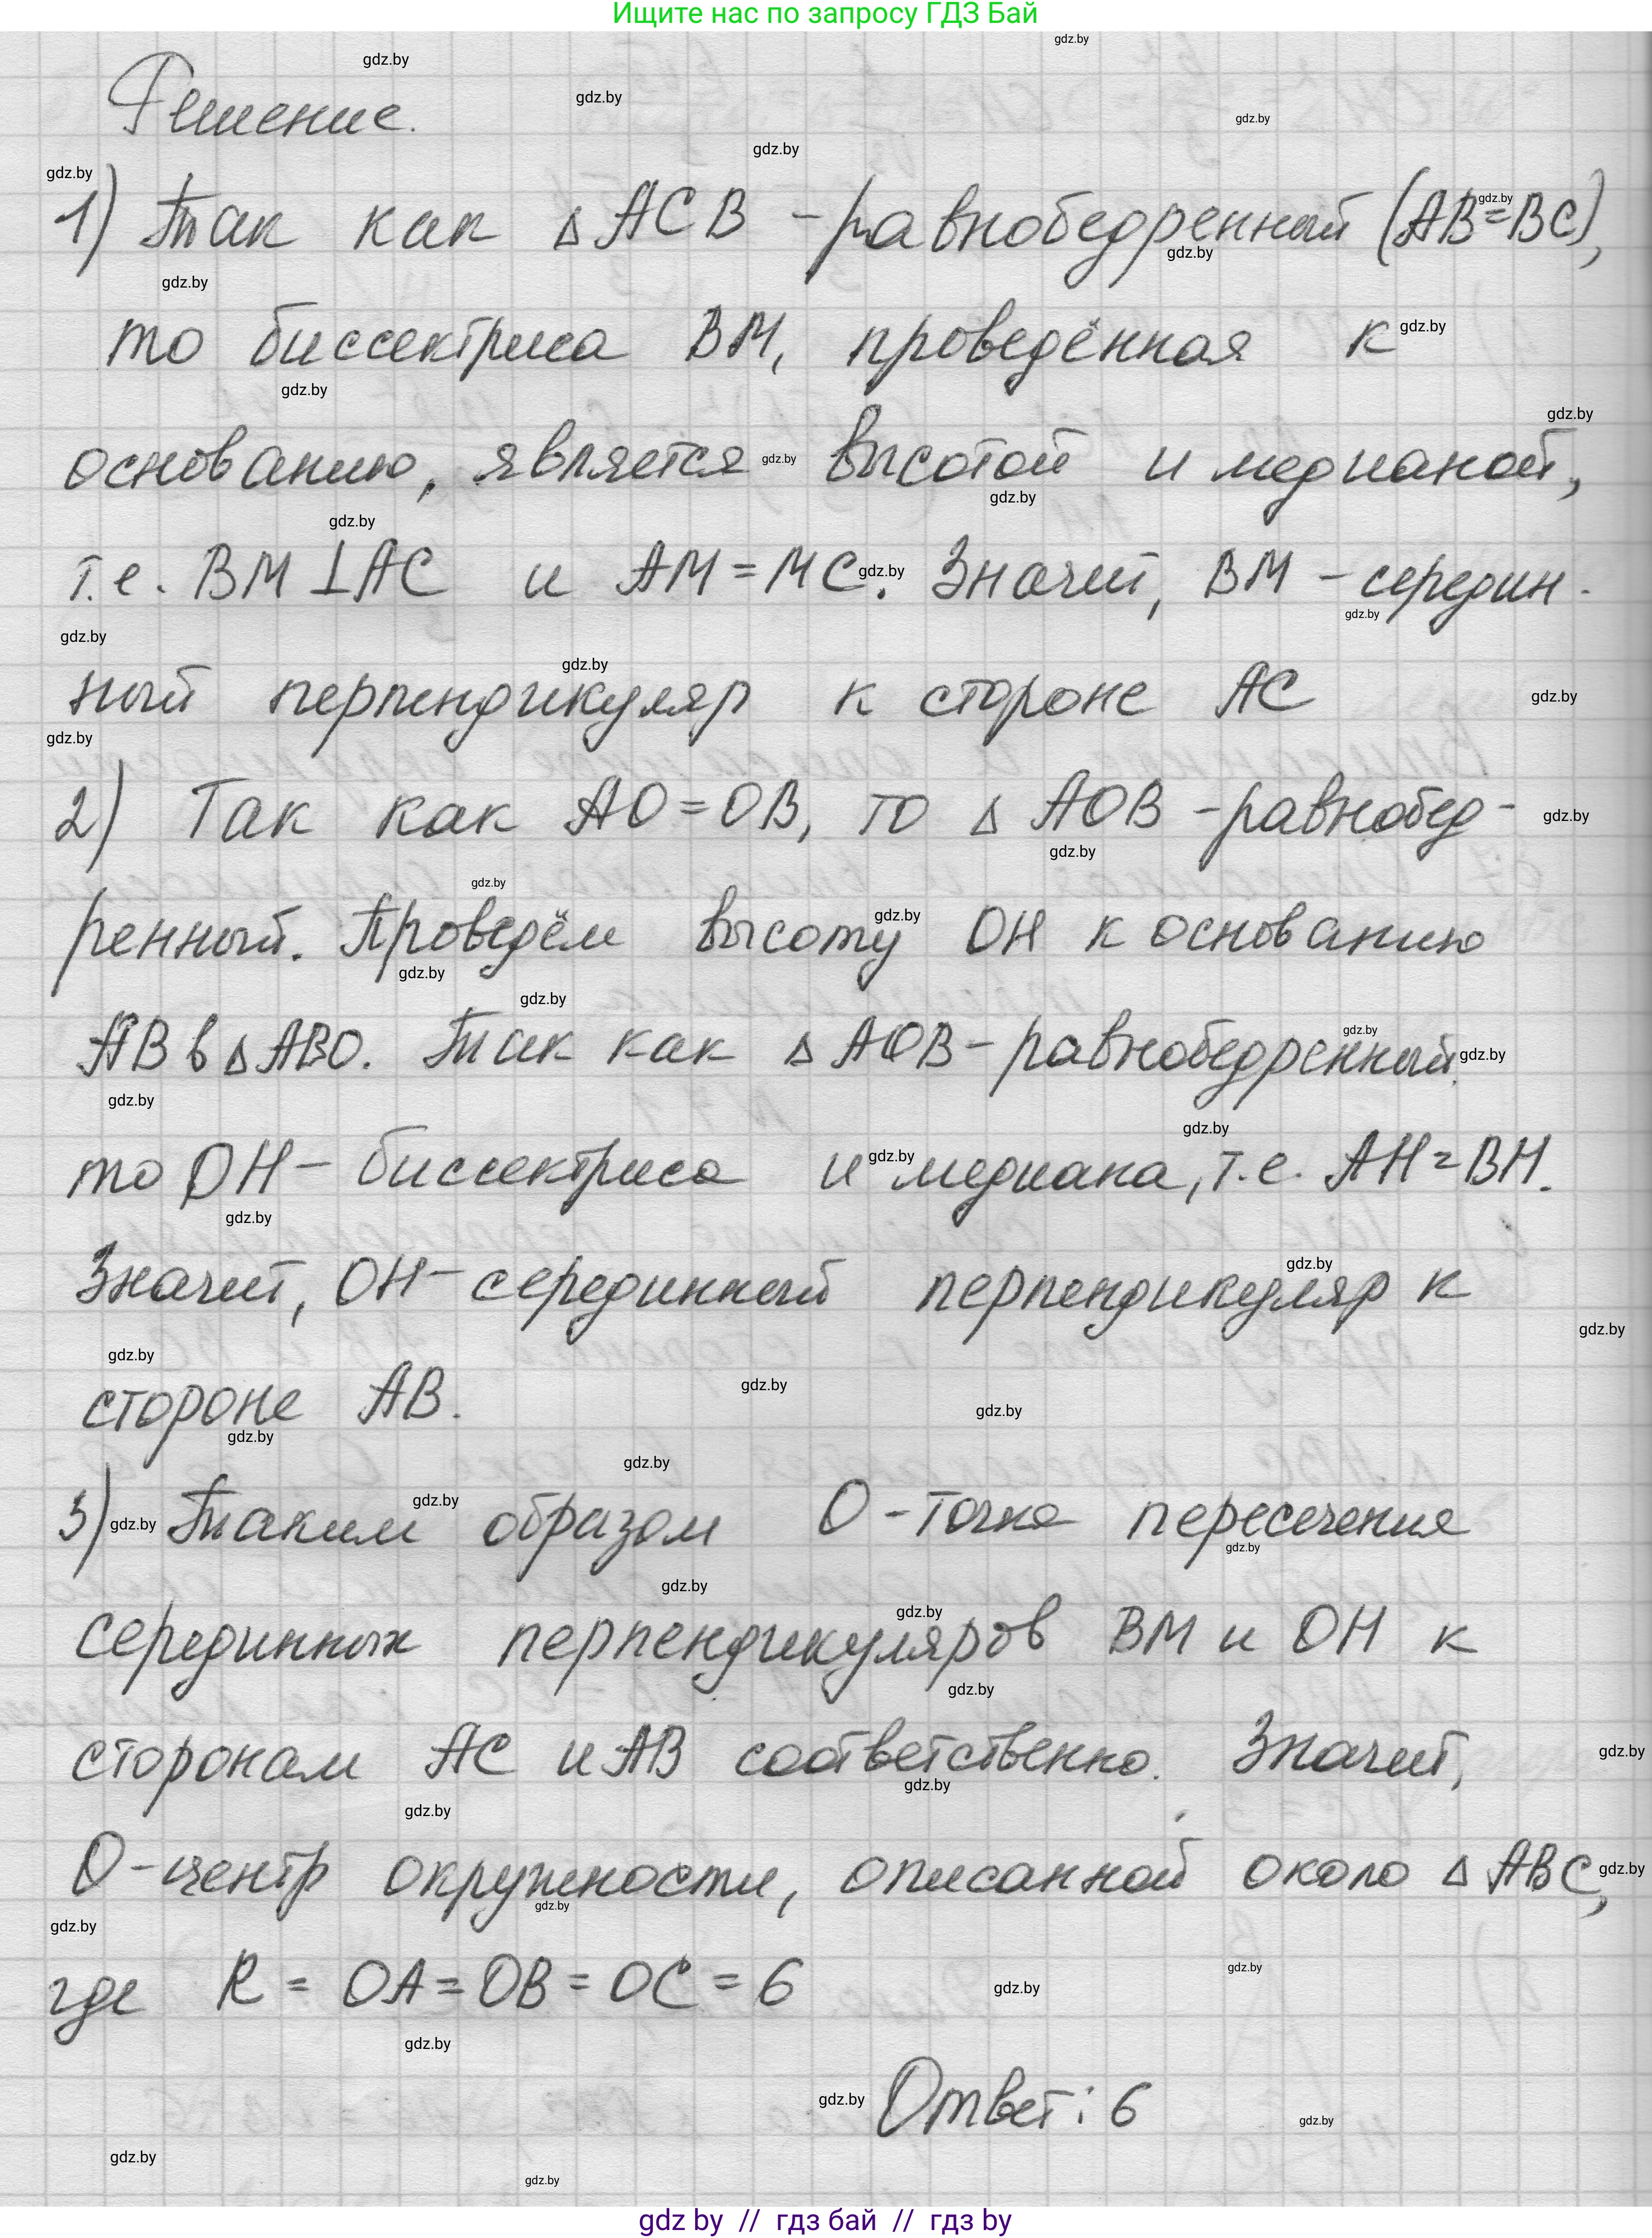 Ищите нас по запросу ГДЗ Бай
Решение.
1) Так как △ACB - равнобедренный (AB=BC),
то биссектриса BM, проведённая к
основанию, является высотой и медианой,
т.е. BM⊥AC и AM=MC. Значит, BM - середин-
ный перпендикуляр к стороне AC
2) Так как AO=OB, то △AOB - равнобед-
ренный. Проведём высоту OH к основанию
AB в △ABO. Так как △AOB - равнобедренный,
то OH - биссектриса и медиана, т.е. AH=BH.
Значит, OH - серединный перпендикуляр к
стороне AB.
3) Таким образом O - точка пересечения
серединных перпендикуляров BM и OH к
сторонам AC и AB соответственно. Значит,
O - центр окружности, описанной около △ABC,
где R = OA = OB = OC = 6
Ответ: 6
gdz by // гдз бай // гдз by